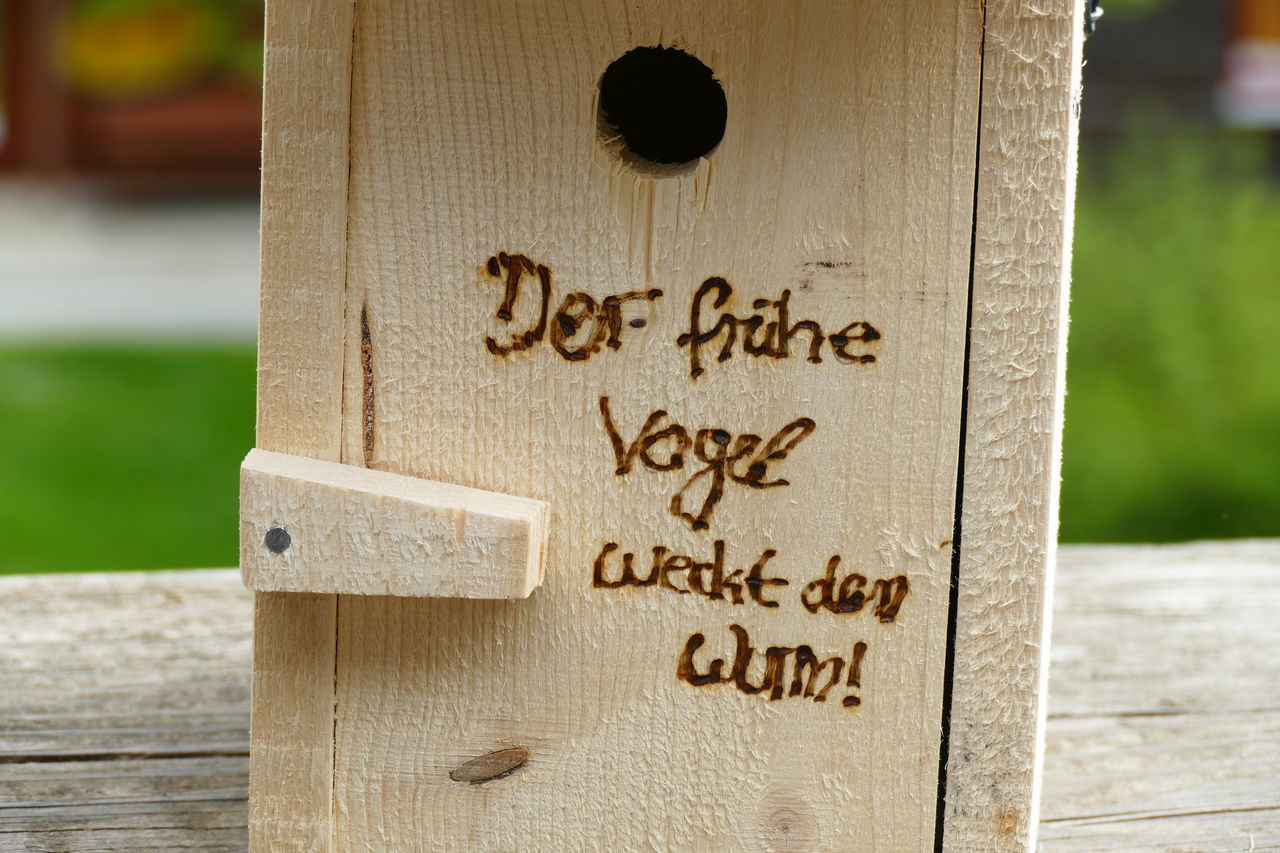 Der frühe
Vogel
weckt den
Wurm!